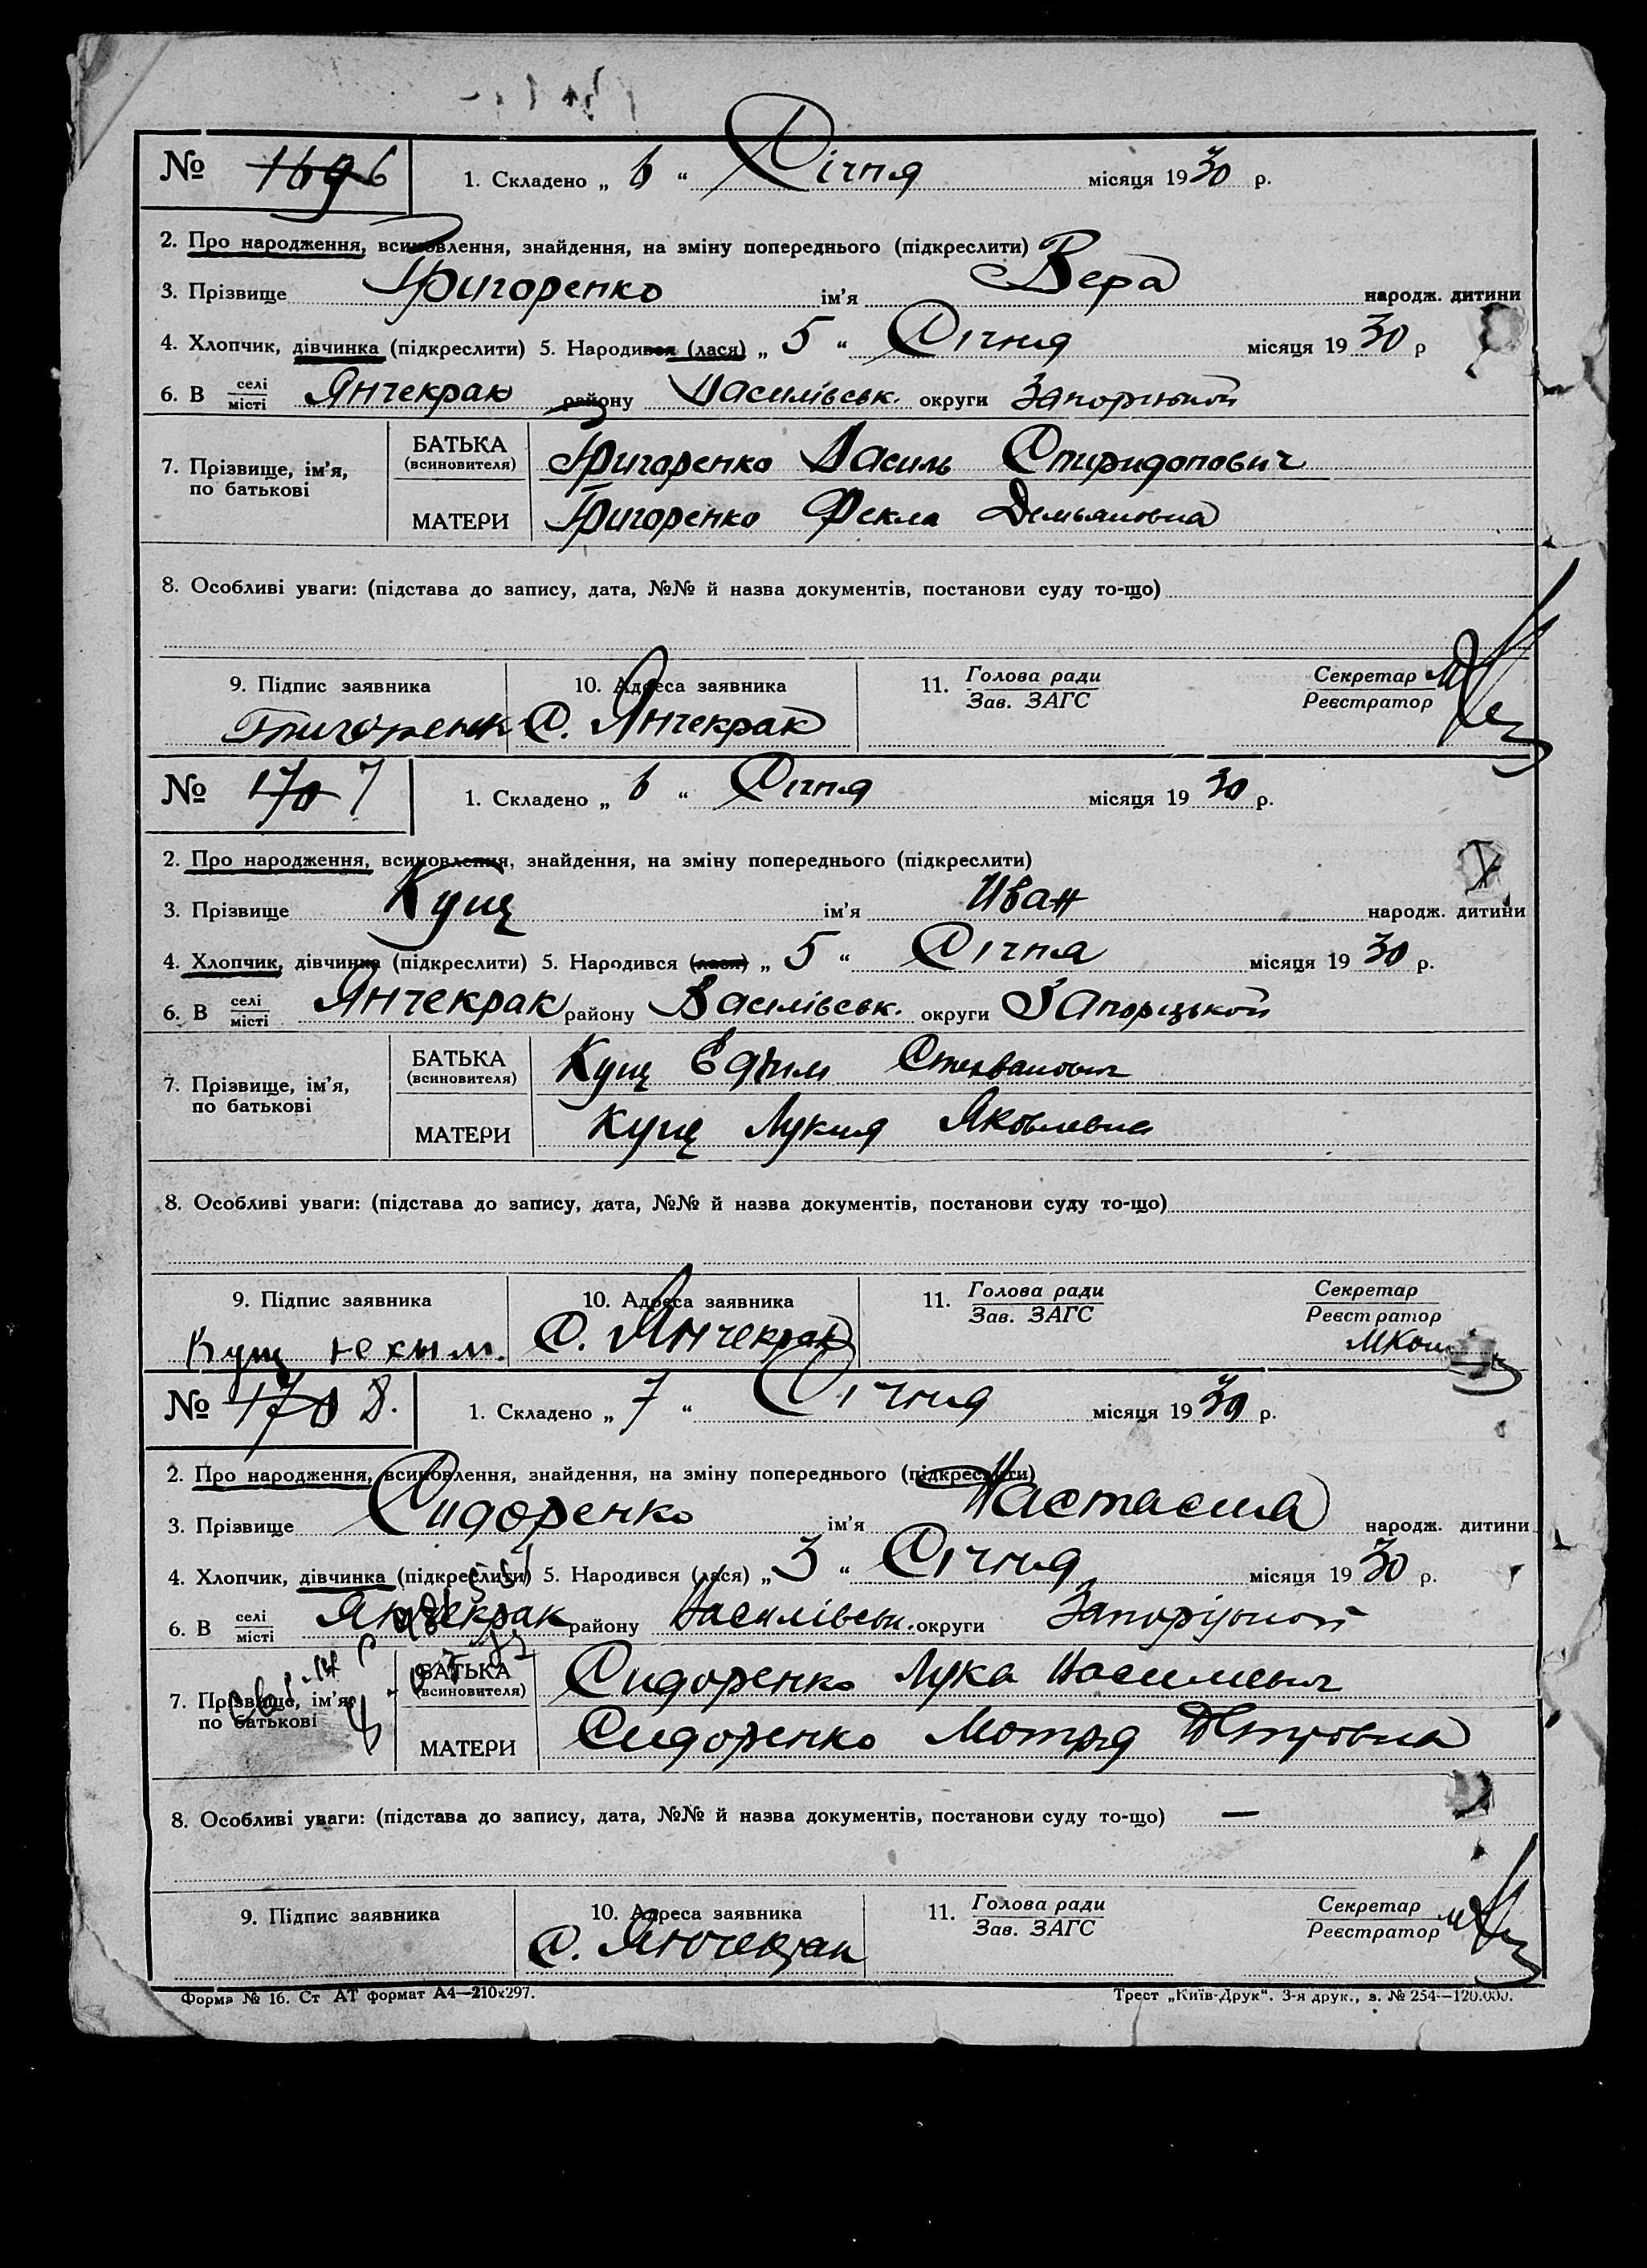 № 169 6 1. Складено „ 6 “ Січня місяця 1930 р.
2. Про народження, всиновлення, знайдення, на зміну попереднього (підкреслити)
3. Прізвище Григоренко ім'я Вера народж. дитини
4. Хлопчик, дівчинка (підкреслити) 5. Народився (лася) „ 5 “ Січня місяця 1930 р
6. В селі/місті Янчекрак району Василівськ. округи Запоріської
7. Прізвище, ім'я, по батькові
БАТЬКА (всиновителя) Григоренко Василь Спиридонович
МАТЕРИ Григоренко Фекла Демьяновна
8. Особливі уваги: (підстава до запису, дата, №№ й назва документів, постанови суду то-що)
9. Підпис заявника 10. Адреса заявника 11. Голова ради/Зав. ЗАГС Секретар/Реєстратор
Григоренк С. Янчекрак
№ 170 7 1. Складено „ 6 “ Січня місяця 1930 р.
2. Про народження, всиновлення, знайдення, на зміну попереднього (підкреслити)
3. Прізвище Кущ ім'я Иван народж. дитини
4. Хлопчик, дівчинка (підкреслити) 5. Народився (лася) „ 5 “ Січня місяця 1930 р.
6. В селі/місті Янчекрак району Василівськ. округи Запоріцької
7. Прізвище, ім'я, по батькові
БАТЬКА (всиновителя) Кущ
МАТЕРИ Кущ Лукия Яковлевна
8. Особливі уваги: (підстава до запису, дата, №№ й назва документів, постанови суду то-що)
9. Підпис заявника 10. Адреса заявника 11. Голова ради/Зав. ЗАГС Секретар/Реєстратор
Кущ С. Янчекрак
№ 8. 1. Складено „ 7 “ Січня місяця 1930 р.
2. Про народження, всиновлення, знайдення, на зміну попереднього (підкреслити)
3. Прізвище Сидоренко ім'я Настасия народж. дитини
4. Хлопчик, дівчинка (підкреслити) 5. Народився (лася) „ 3 “ Січня місяця 1930 р.
6. В селі/місті Янчекрак району Василівськ. округи Запоріської
7. Прізвище, ім'я, по батькові
БАТЬКА (всиновителя) Сидоренко Лука Васильевич
МАТЕРИ Сидоренко Мотря Петровна
8. Особливі уваги: (підстава до запису, дата, №№ й назва документів, постанови суду то-що) —
9. Підпис заявника 10. Адреса заявника 11. Голова ради/Зав. ЗАГС Секретар/Реєстратор
С. Янчекрак
Форма № 16. Ст АТ формат А4—210x297. Трест „Київ-Друк“. 3-я друк., з. № 254—120.000.